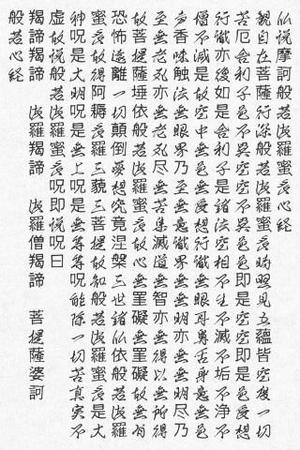 仏説摩訶般若波羅蜜多心経
観自在菩薩行深般若波羅蜜多時照見五蘊皆空度一切
苦厄舎利子色不異空空不異色色即是空空即是色受想
行識亦復如是舎利子是諸法空相不生不滅不垢不浄不
増不減是故空中無色無受想行識無眼耳鼻舌身意無色
声香味触法無眼界乃至無意識界無無明亦無無明尽乃
至無老死亦無老死尽無苦集滅道無智亦無得以無所得
故菩提薩埵依般若波羅蜜多故心無罣礙無罣礙故無有
恐怖遠離一切顛倒夢想究竟涅槃三世諸仏依般若波羅
蜜多故得阿耨多羅三藐三菩提故知般若波羅蜜多是大
神呪是大明呪是無上呪是無等等呪能除一切苦真実不
虚故説般若波羅蜜多呪即説呪曰
羯諦羯諦 波羅羯諦 波羅僧羯諦 菩提薩婆訶
般若心経